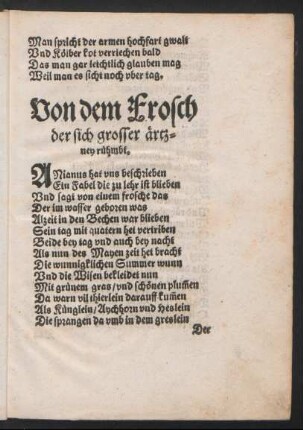 Man spricht der armen hochfart gwalt
Vnd Kölber kot verriechen bald
Das man gar leichtlich glauben mag
Weil man es sicht noch vber tag.
Von dem Frosch
der sich grosser ärtz-
ney rühmbt.
ANianus hat vns beschrieben
Ein Fabel die zu lehr ist blieben
Vnd sagt von einem frosche das
Der im wasser geboren was
Alzeit in den Bechen war blieben
Sein tag mit quatern het vertriben
Beide bey tag vnd auch bey nacht
Als nun des Mayen zeit het bracht
Die wunnigklichen Summer wunn
Vnd die Wisen bekleidet nun
Mit grünem gras/vnd schönen plumen
Da warn vil thierlein darauff kumen
Als Künglein/Aychhorn vnd Heslein
Die sprangen da vmb in dem greslein
Der